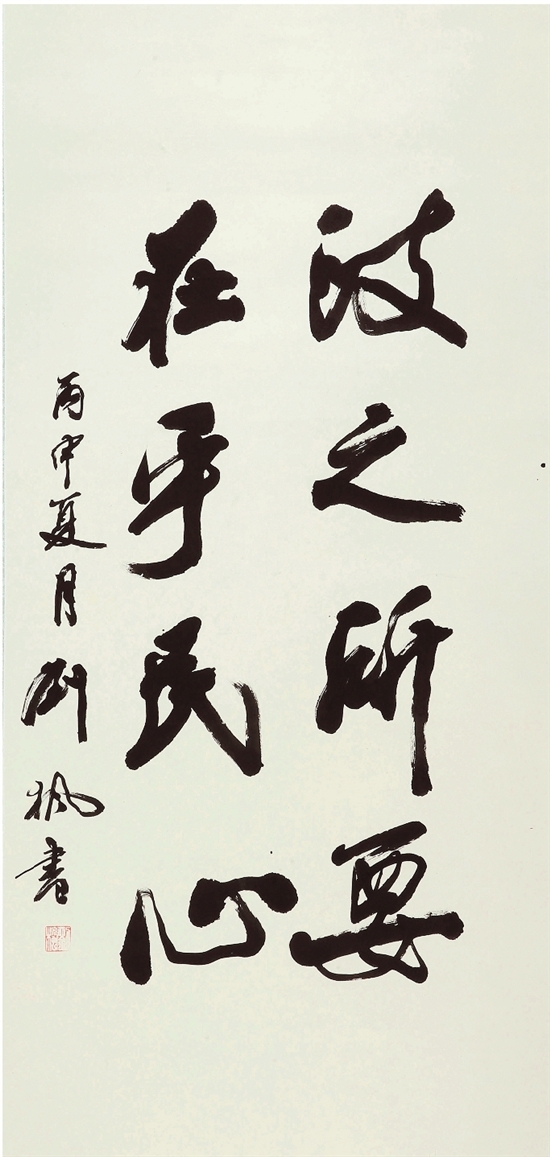 政之所要
在乎民心
丙申夏月刘枫書